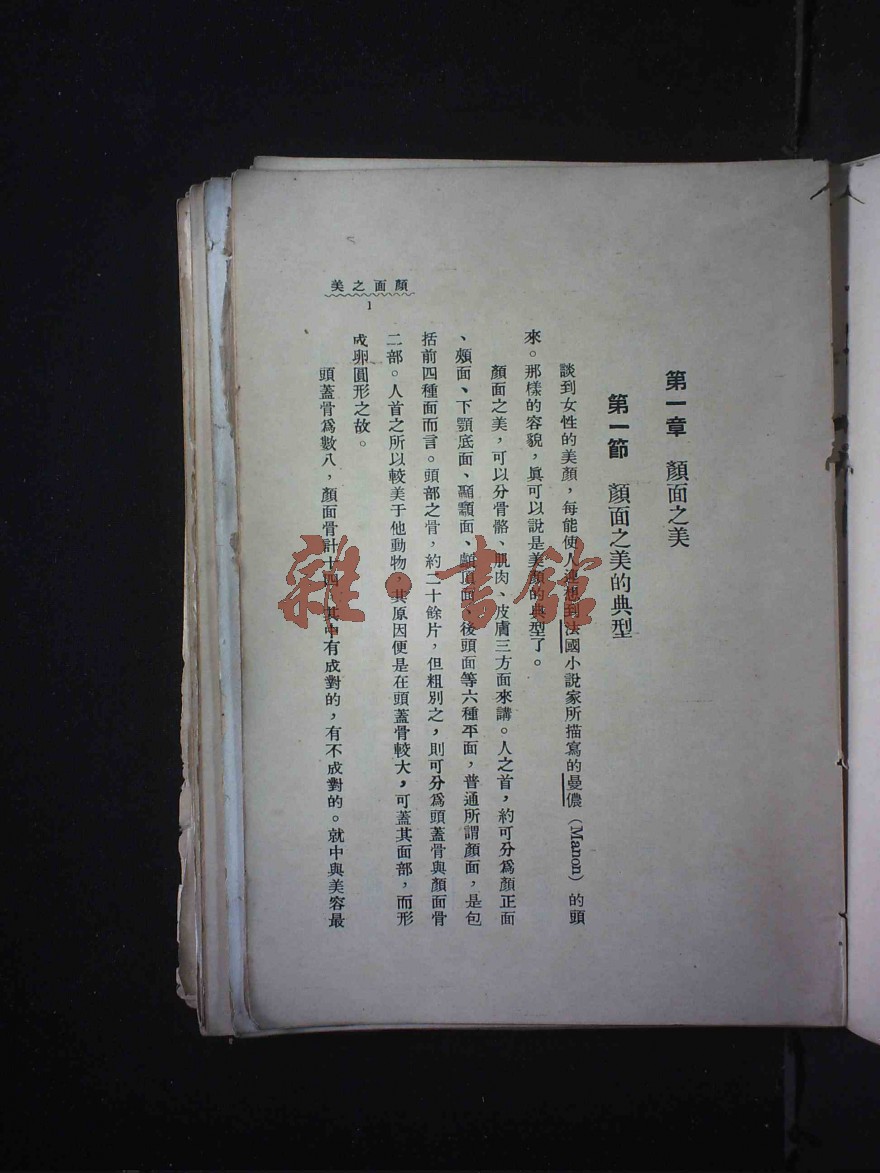 第一章　顏面之美
第一節　顏面之美的典型
談到女性的美顏，每能使人連想到法國小說家所描寫的曼儂（Manon）的頭
來。那樣的容貌，眞可以說是美顏的典型了。
顏面之美，可以分骨骼、肌肉、皮膚三方面來講。人之首，約可分爲顏正面
、頰面、下顎底面、顳顬面、顱頂面、後頭面等六種平面，普通所謂顏面，是包
括前四種面而言。頭部之骨，約二十餘片，但粗別之，則可分爲頭蓋骨與顏面骨
二部。人首之所以較美于他動物，其原因便是在頭蓋骨較大，可蓋其面部，而形
成卵圓形之故。
頭蓋骨爲數八，顏面骨計十四，其中有成對的，有不成對的。就中與美容最
顏面之美
1
雜·書館